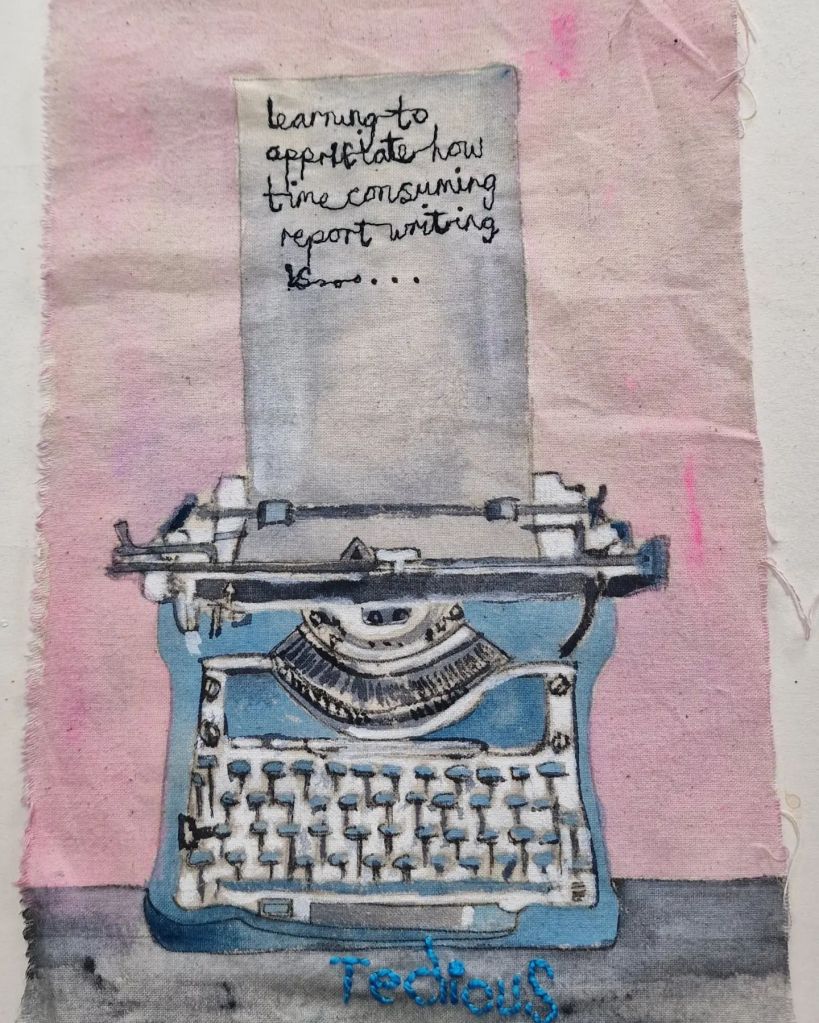 learning to
appreciate how
time consuming
report writing
is.......
Tedious